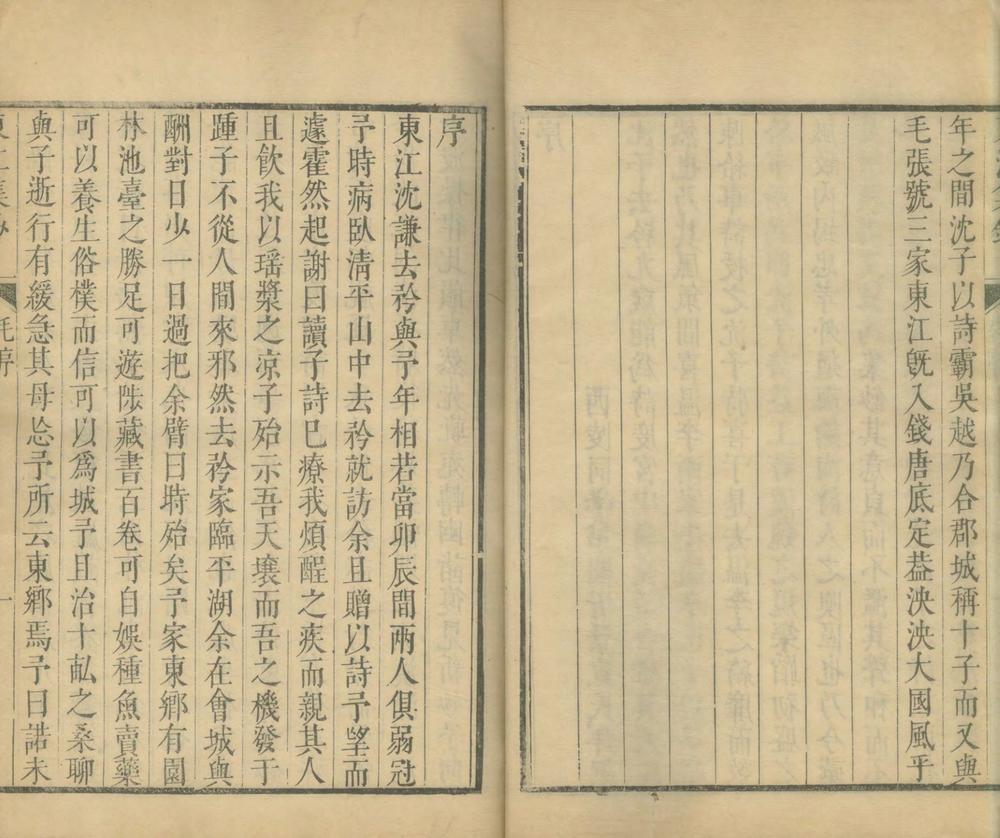 年之間沈子以詩霸吳越乃合郡城稱十子而又與
毛張號三家東江旣入錢唐底定葢泱泱大國風乎
序
東江沈謙去矜與予年相若當卯辰間兩人俱弱冠
予時病臥淸平山中去矜就訪余且贈以詩予望而
遽霍然起謝曰讀子詩已療我煩酲之疾而親其人
且飮我以瑶漿之凉子殆示吾天壤而吾之機發于
踵子不從人間來邪然去矜家臨平湖余在會城與
酬對日少一日過把余臂曰時殆矣予家東鄉有園
林池臺之勝足可遊陟藏書百卷可自娛種魚賣藥
可以養生俗樸而信可以爲城予且治十畝之桑聊
與子逝行有緩急其母忩予所云東鄉焉予曰諾未
毛序
一